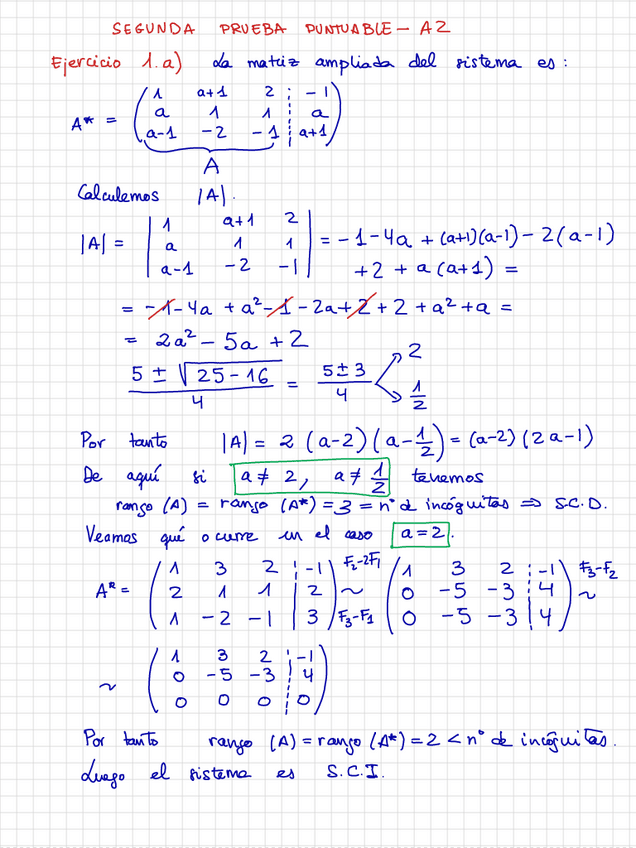 SEGUNDA PRUEBA PUNTUABLE - A2
Ejercicio 1.a) La matriz ampliada del sistema es:
A* = ( 1 a+1 2 ¦ -1
a 1 1 ¦ a
a-1 -2 -1 ¦ a+1 )
A
Calculemos |A|.
|A| = | 1 a+1 2
a 1 1
a-1 -2 -1 | = -1-4a + (a+1)(a-1) - 2(a-1)
+2 + a(a+1) =
= -1-4a + a² -1 -2a+2 +2 + a² +a =
= 2a² - 5a + 2
5 ± √25-16 / 4 = 5±3 / 4 2
1/2
Por tanto |A| = 2 (a-2)(a-1/2) = (a-2)(2a-1)
De aquí si a≠2, a≠1/2 tenemos
rango (A) = rango (A*) = 3 = nº d incógnitas ⇒ S.C.D.
Veamos qué ocurre en el caso a=2.
A* = ( 1 3 2 ¦ -1
2 1 1 | 2
1 -2 -1 | 3 ) F2-2F1 ~ F3-F1 ( 1 3 2 ¦ -1
0 -5 -3 ¦ 4
0 -5 -3 | 4 ) F3-F2 ~
~ ( 1 3 2 ¦ -1
0 -5 -3 ¦ 4
0 0 0 ¦ 0 )
Por tanto rango (A) = rango (A*) = 2 < nº de incógnitas.
Luego el sistema es S.C.I.